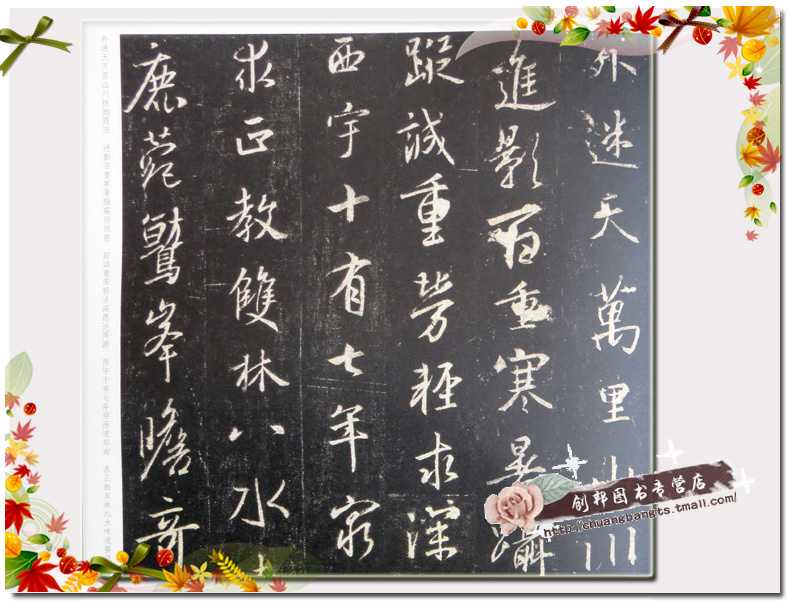 外迷天萬里山川
進影百重寒暑躡
蹤誠重勞輕求深
西宇十有七年窮
求正教雙林八水
鹿菀鷲峯瞻奇
外迷天万里山川拨烟霞而 进影百重寒暑蹑霜雨而前 踪诚重劳轻求深愿达周游 西宇十有七年穷历道邦询 求正教双林八水味道餐
创邦图书专营店
http://chuangbangts.tmall.com/